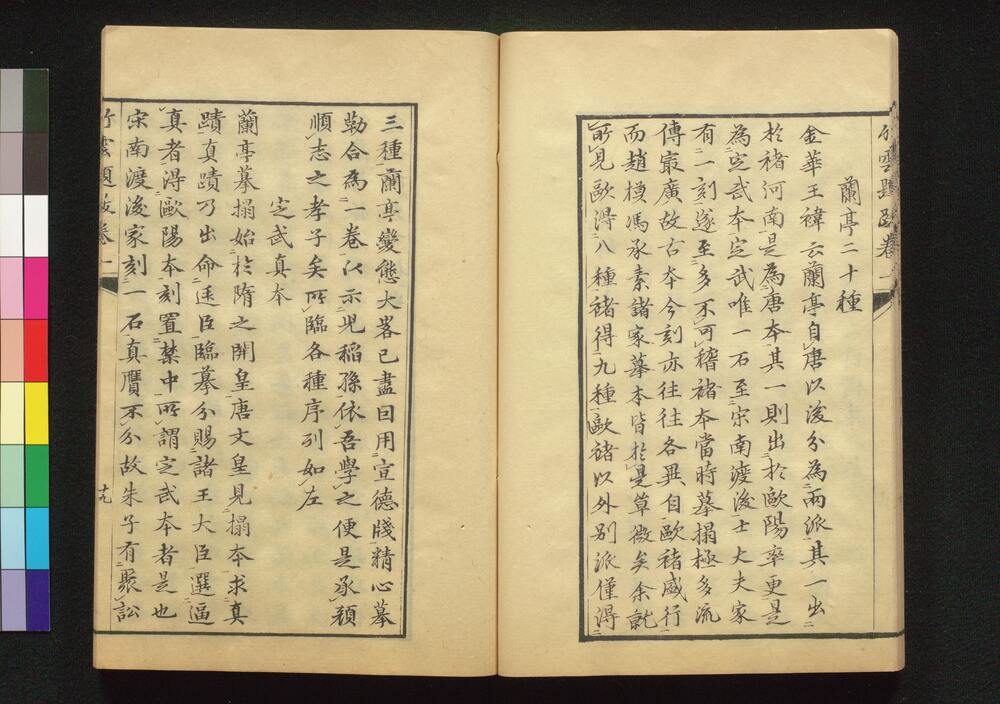 竹雲題跋卷一
蘭亭二十種
金華王禕云蘭亭自唐以後分為兩派其一出
於褚河南是為唐本其一則出於歐陽率更是
為定武本定武唯一石至宋南渡後士大夫家
有一刻遂至多不可稽褚本當時摹搨極多流
傳最廣故古本今刻亦往往各異自歐褚盛行
而趙模馮承素諸家摹本皆於是草微矣余就
所見歐得八種褚得九種歐褚以外別派僅得
三種蘭亭變態大畧已盡曰用宣德牋精心摹
勒合為一卷以示兒稻孫依吾學之便是承顏
順志之孝子矣所臨各種序列如左
定武真本
蘭亭摹搨始於隋之開皇唐文皇見搨本求真
蹟真蹟乃出命廷臣臨摹分賜諸王大臣選逼
真者得歐陽本刻置禁中所謂定武本者是也
宋南渡後家刻一石真贋不分故朱子有聚訟
竹雲題跋卷一
十九